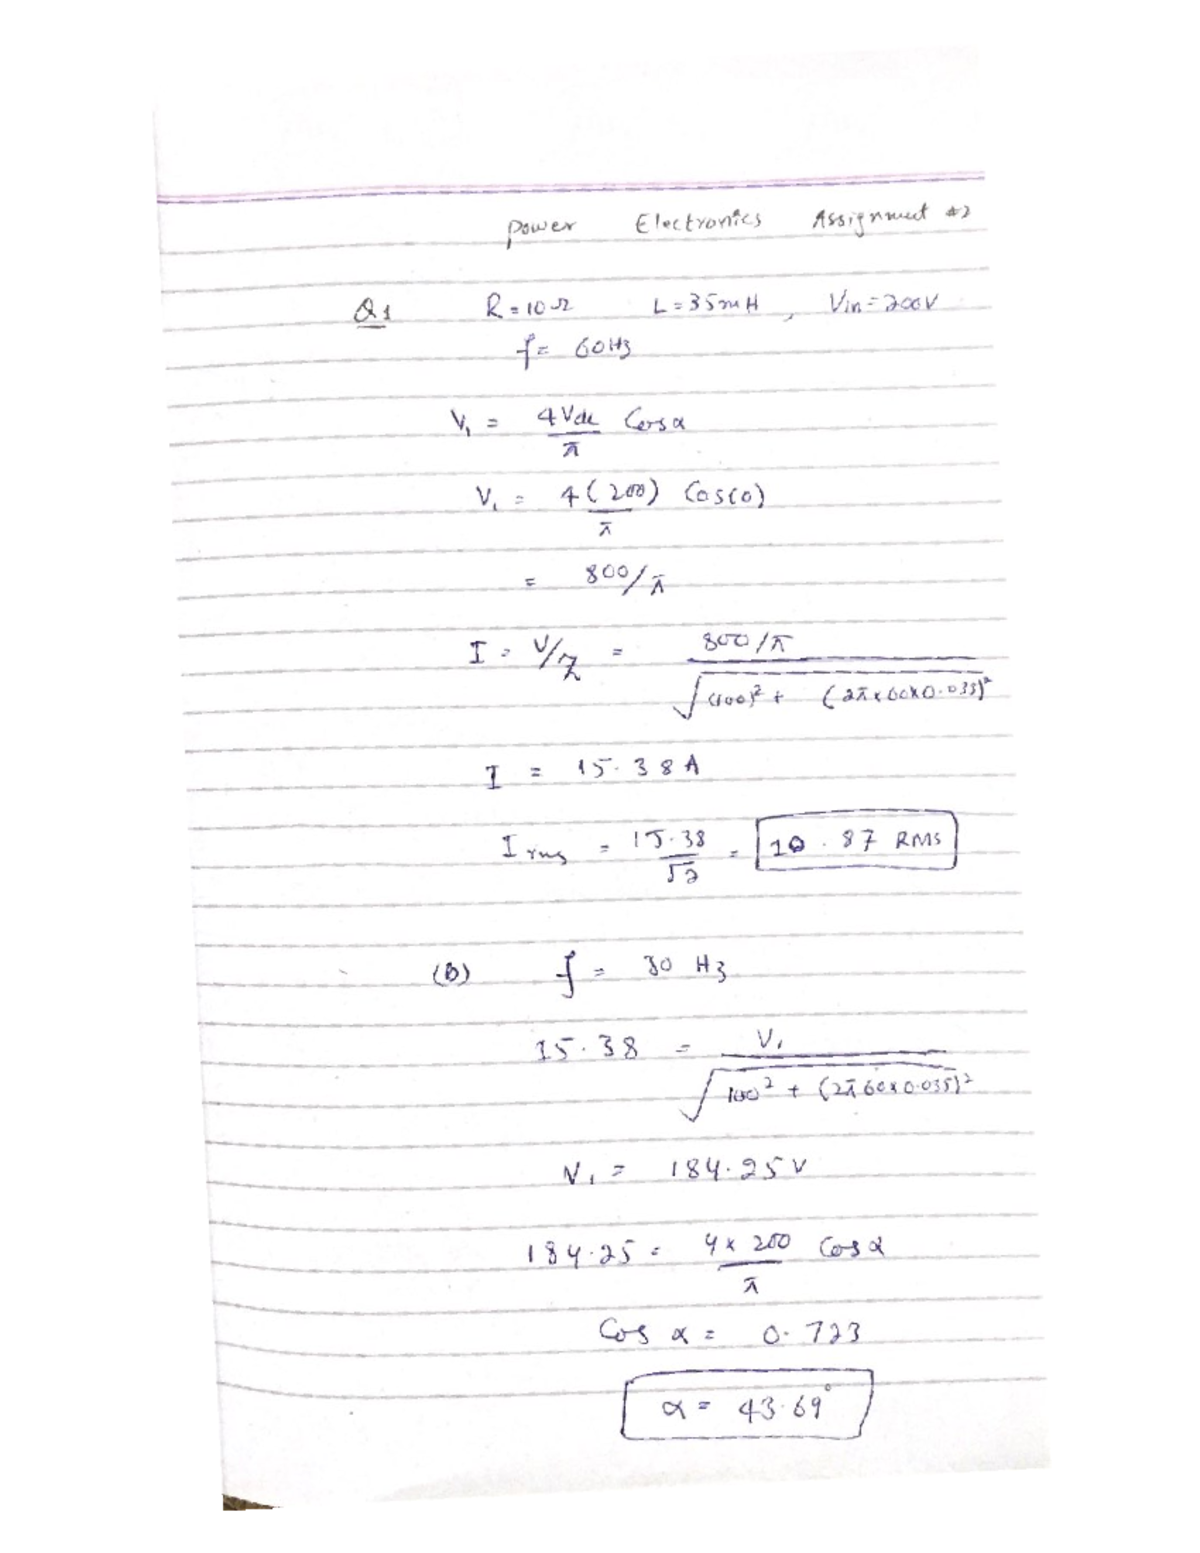 Power Electronics Assignment #2
Q1 R = 10 Ω L = 35mH , Vin = 200V
f = 60Hz
V₁ = 4Vdc/π Cosα
V₁ = 4(200)/π Cos(0)
= 800/π
I = V/Z = 800/π / √((100)² + (2π×60×0.035)²)
I = 15.38A
I rms = 15.38/√2 = 10.87 RMS
(b) f = 30 Hz
15.38 = V₁ / √(100² + (2π60×0.035)²)
V₁ = 184.25V
184.25 = 4×200/π Cosα
Cos α = 0.723
α = 43.69°